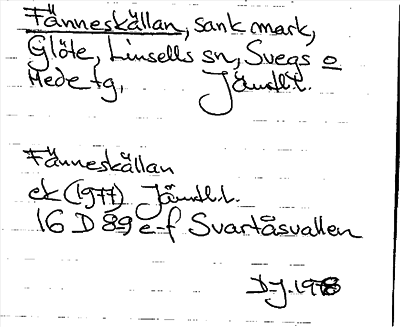 Fänneskällan, sank mark,
Glöte, Linsells sn, Svegs o
Hede tg, Jämtl.l.
Fänneskällan
ek (1977) Jämtl.l.
16 D 89 e-f Svartåsvallen
D.J. 1978